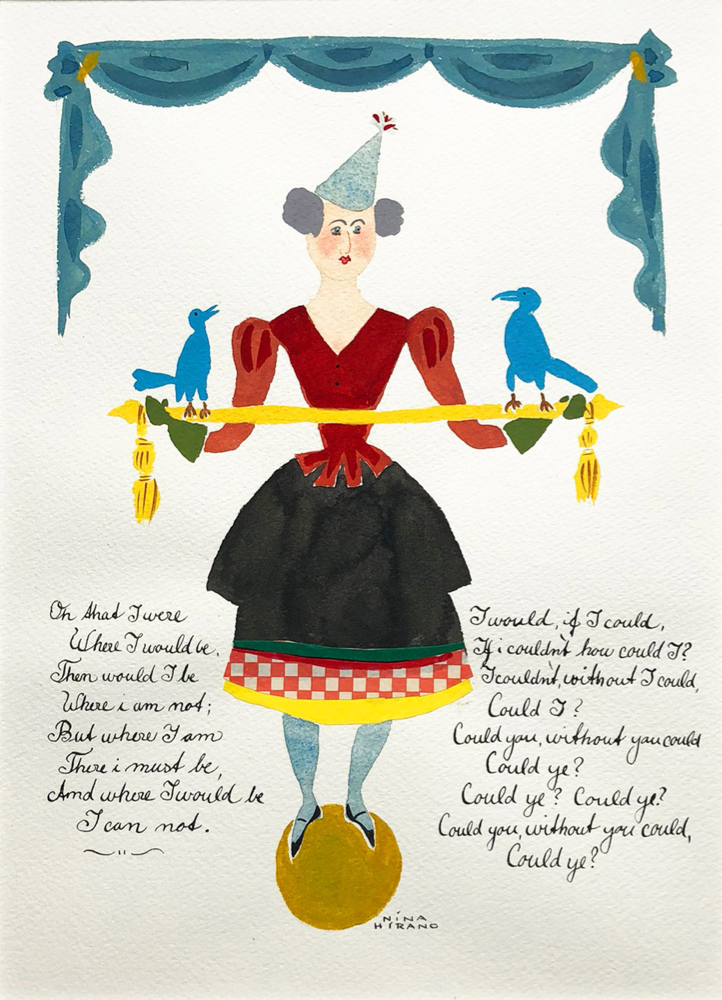 Oh that I were
Where I would be,
Then would I be
Where i am not;
But where I am
There i must be,
And where I would be
I can not.
I would, if I could,
If i couldn't how could I?
I couldn't, without I could,
Could I?
Could you, without you could
Could ye?
Could ye? Could ye?
Could you, without you could,
Could ye?
NINA
HIRANO